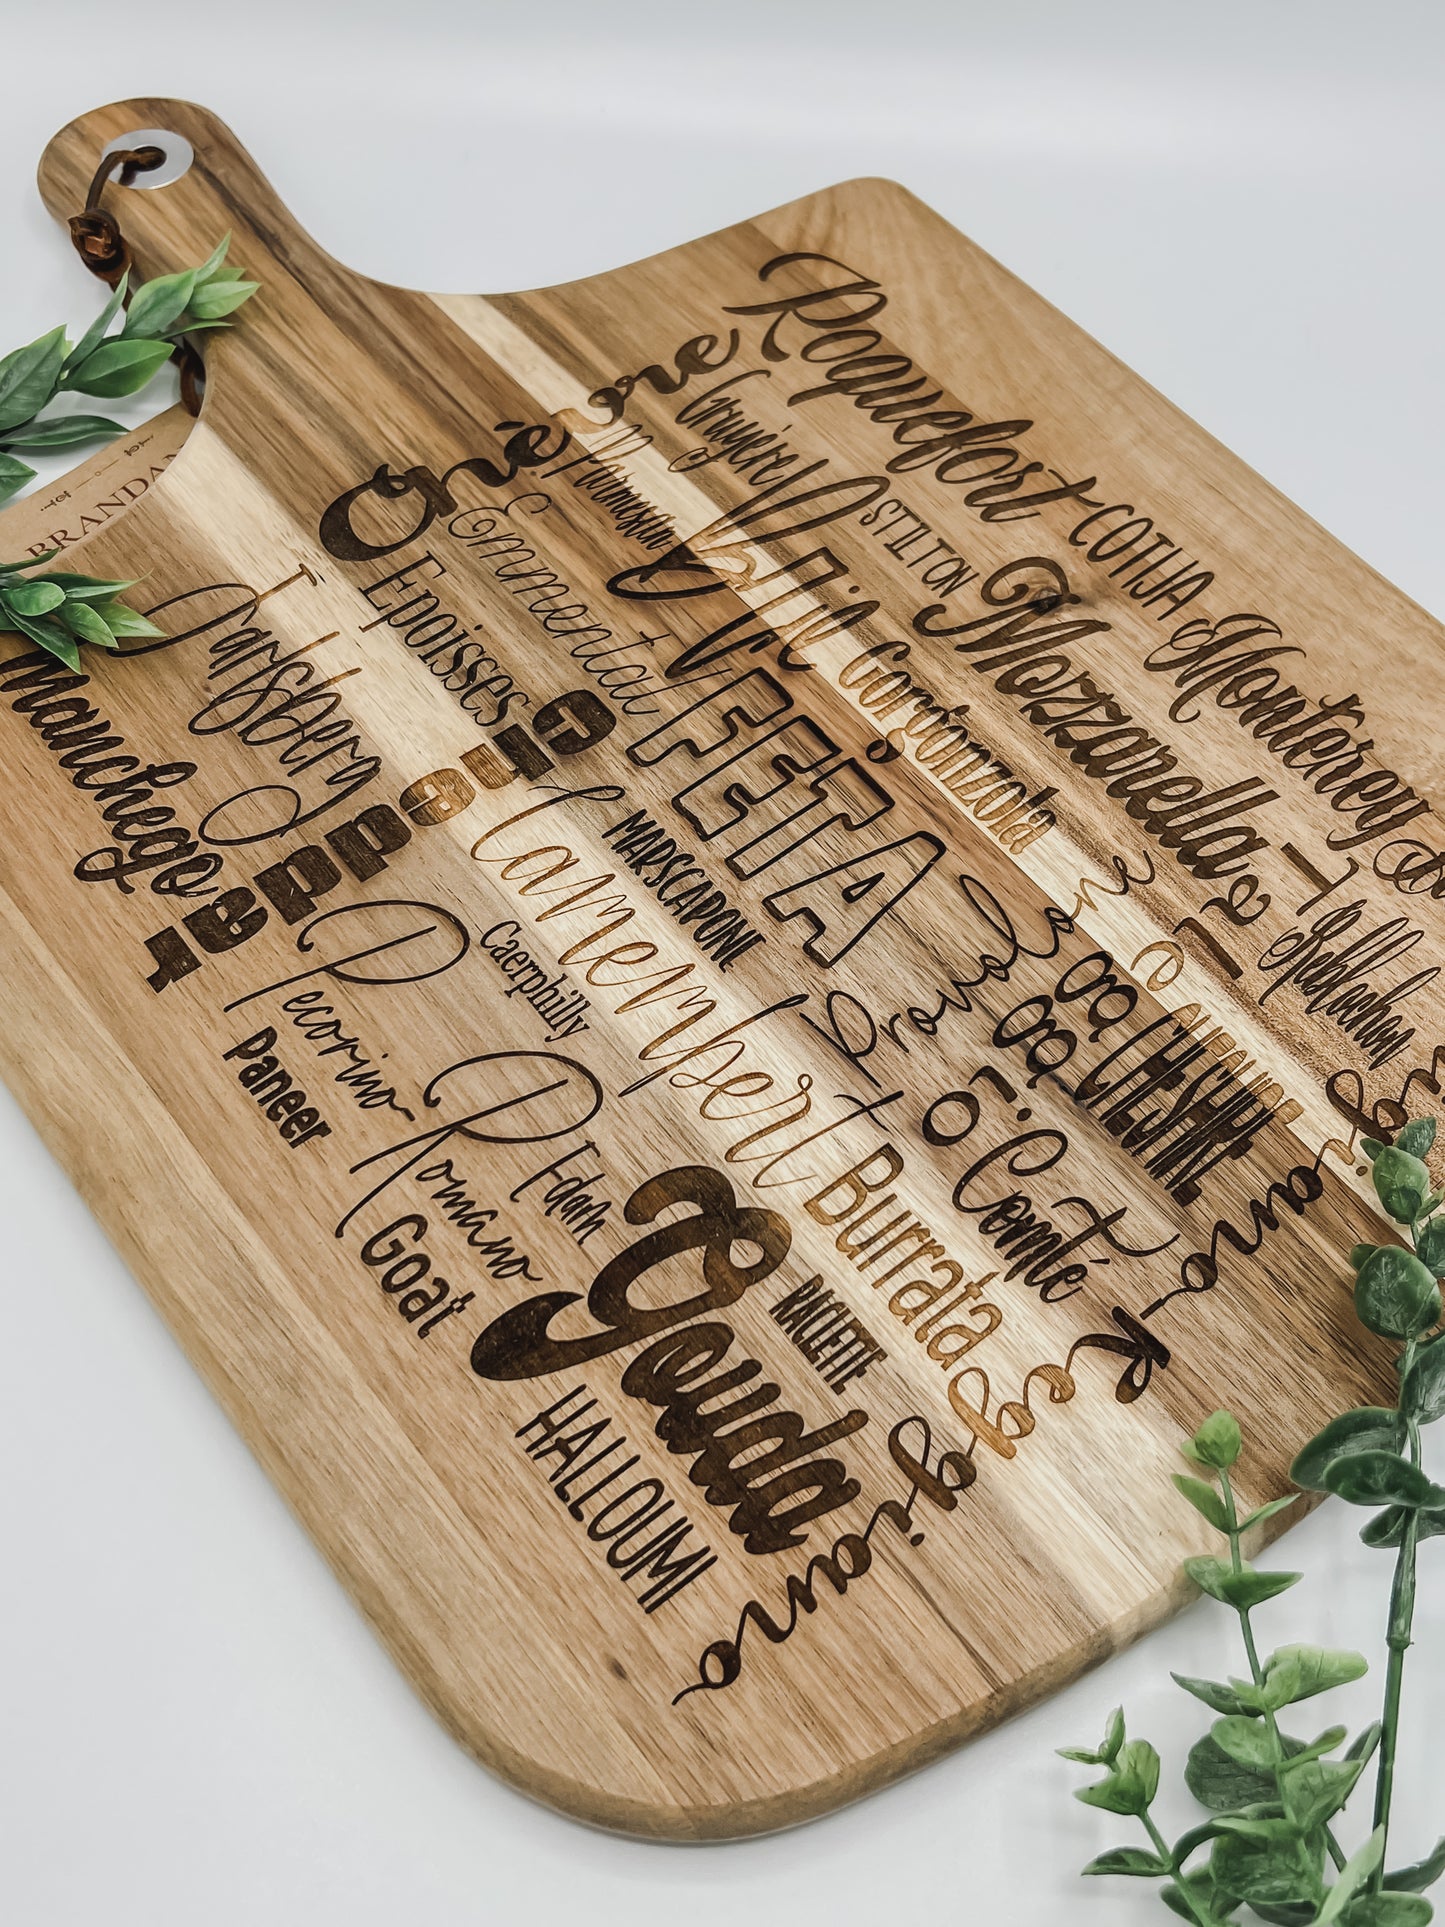 BRANDAN
Roquefort
COTIJA
Monterey
Gruyère
STILTON
Mozzarella
Reblochon
Parmesan
Brie
Gorgonzola
Emmental
FETA
Provolone
CHESHIRE
Epoisses
MARSCAPONE
Comté
Jarlsberg
Camembert
Burrata
manchego
Caerphilly
RACLETTE
Pecorino
Romano
Edam
Gouda
Paneer
Goat
HALLOUMI